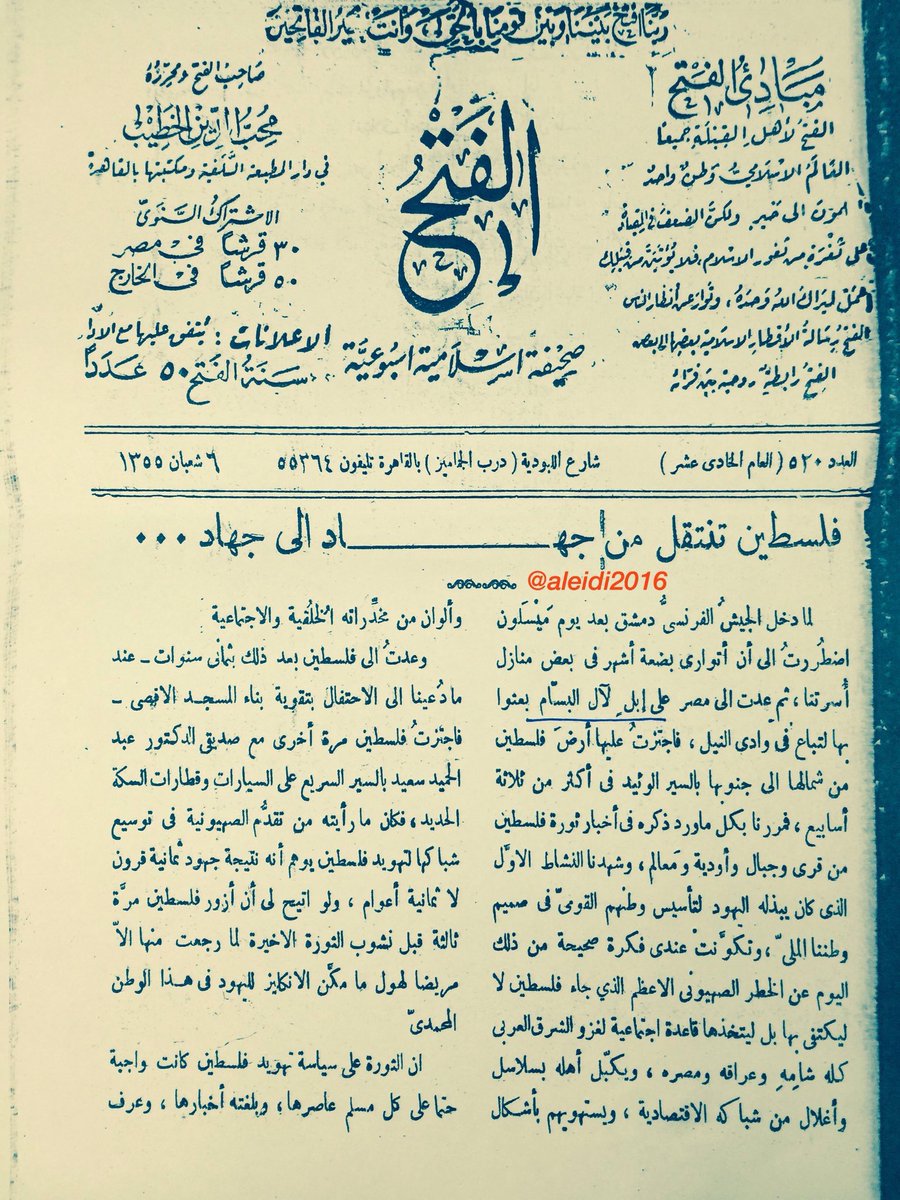 ربنا افتح بيننا وبين قومنا بالحق وأنت خير الفاتحين
مبادئ الفتح
الفتح لأهل القبلة جميعا
العالم الاسلامي وطن واحد
المؤمن الى خير ولكن الضعف في القيادة
على ثغرة من ثغور الاسلام، فلا يؤتين من قبلك
اعمل ليراك الله وحده، وتوار عن أنظار الناس
الفتح رسالة الأقطار الاسلامية بعضها الى بعض
الفتح رابطة روحية بين قرائه
الفتح
صحيفة اسلامية اسبوعية
صاحب الفتح ومحرره
محب الدين الخطيب
في دار المطبعة السلفية ومكتبتها بالقاهرة
الاشتراك السنوى
٣٠ قرشاً فى مصر
٥٠ قرشاً فى الخارج
الاعلانات : يتفق عليها مع الادارة
سنة الفتح ٥٠ عدداً
العدد ٥٢٠ ( العام الحادى عشر ) شارع اللبودية ( درب الجماميز ) بالقاهرة تليفون ٥٥٣٦٤ ٦ شعبان ١٣٥٥
فلسطين تنتقل من جهـاد الى جهاد ...
@aleidi2016
لما دخل الجيشُ الفرنسىُّ دمشق بعد يوم مَيْسَلون
اضطُررتُ الى أن أتوارى بضعة أشهر فى بعض منازل
أُسرتنا، ثم عدت الى مصر على إبلٍ لآل البسّام بعثوا
بها لتباع فى وادى النيل، فاجتزتُ عليها أرضَ فلسطين
من شمالها الى جنوبها بالسير الوئيد فى أكثر من ثلاثة
أسابيع، فمررنا بكل ماورد ذكره فى أخبار ثورة فلسطين
من قرى وجبال وأودية ومَعالم، وشهدنا النشاط الاوَّل
الذى كان يبذله اليهود لتأسيس وطنهم القومىّ فى صميم
وطننا الملىّ، وتكوَّنتْ عندى فكرة صحيحة من ذلك
اليوم عن الخطر الصهيونى الاعظم الذي جاء فلسطين لا
ليكتفى بها بل ليتخذها قاعدة اجتماعية لغزو الشرق العربى
كله شامِهِ وعراقه ومصره، ويكبّل أهله بسلاسل
وأغلال من شباكه الاقتصادية، ويستهويهم بأشكال
وألوان من مخدِّراته الخلُقية والاجتماعية
وعدتُ الى فلسطين بعد ذلك بثمانى سنوات ـ عند
مادُعينا الى الاحتفال بتقوية بناء المسجد الاقصى ـ
فاجتزتُ فلسطين مرة أخرى مع صديقى الدكتور عبد
الحميد سعيد بالسير السريع على السيارات وقطارات السكة
الحديد، فكان ما رأيته من تقدُّم الصهيونية فى توسيع
شباكها لتهويد فلسطين يوهم أنه نتيجة جهود ثمانية قرون
لا ثمانية أعوام، ولو اتيح لى أن أزور فلسطين مرَّة
ثالثة قبل نشوب الثورة الاخيرة لما رجعت منها الاّ
مريضا لهول ما مكَّن الانكليز لليهود فى هـذا الوطن
المحمدىّ
ان الثورة على سياسة تهويد فلسطين كانت واجبة
حتما على كل مسلم عاصرها، وبلغته أخبارها، وعرف